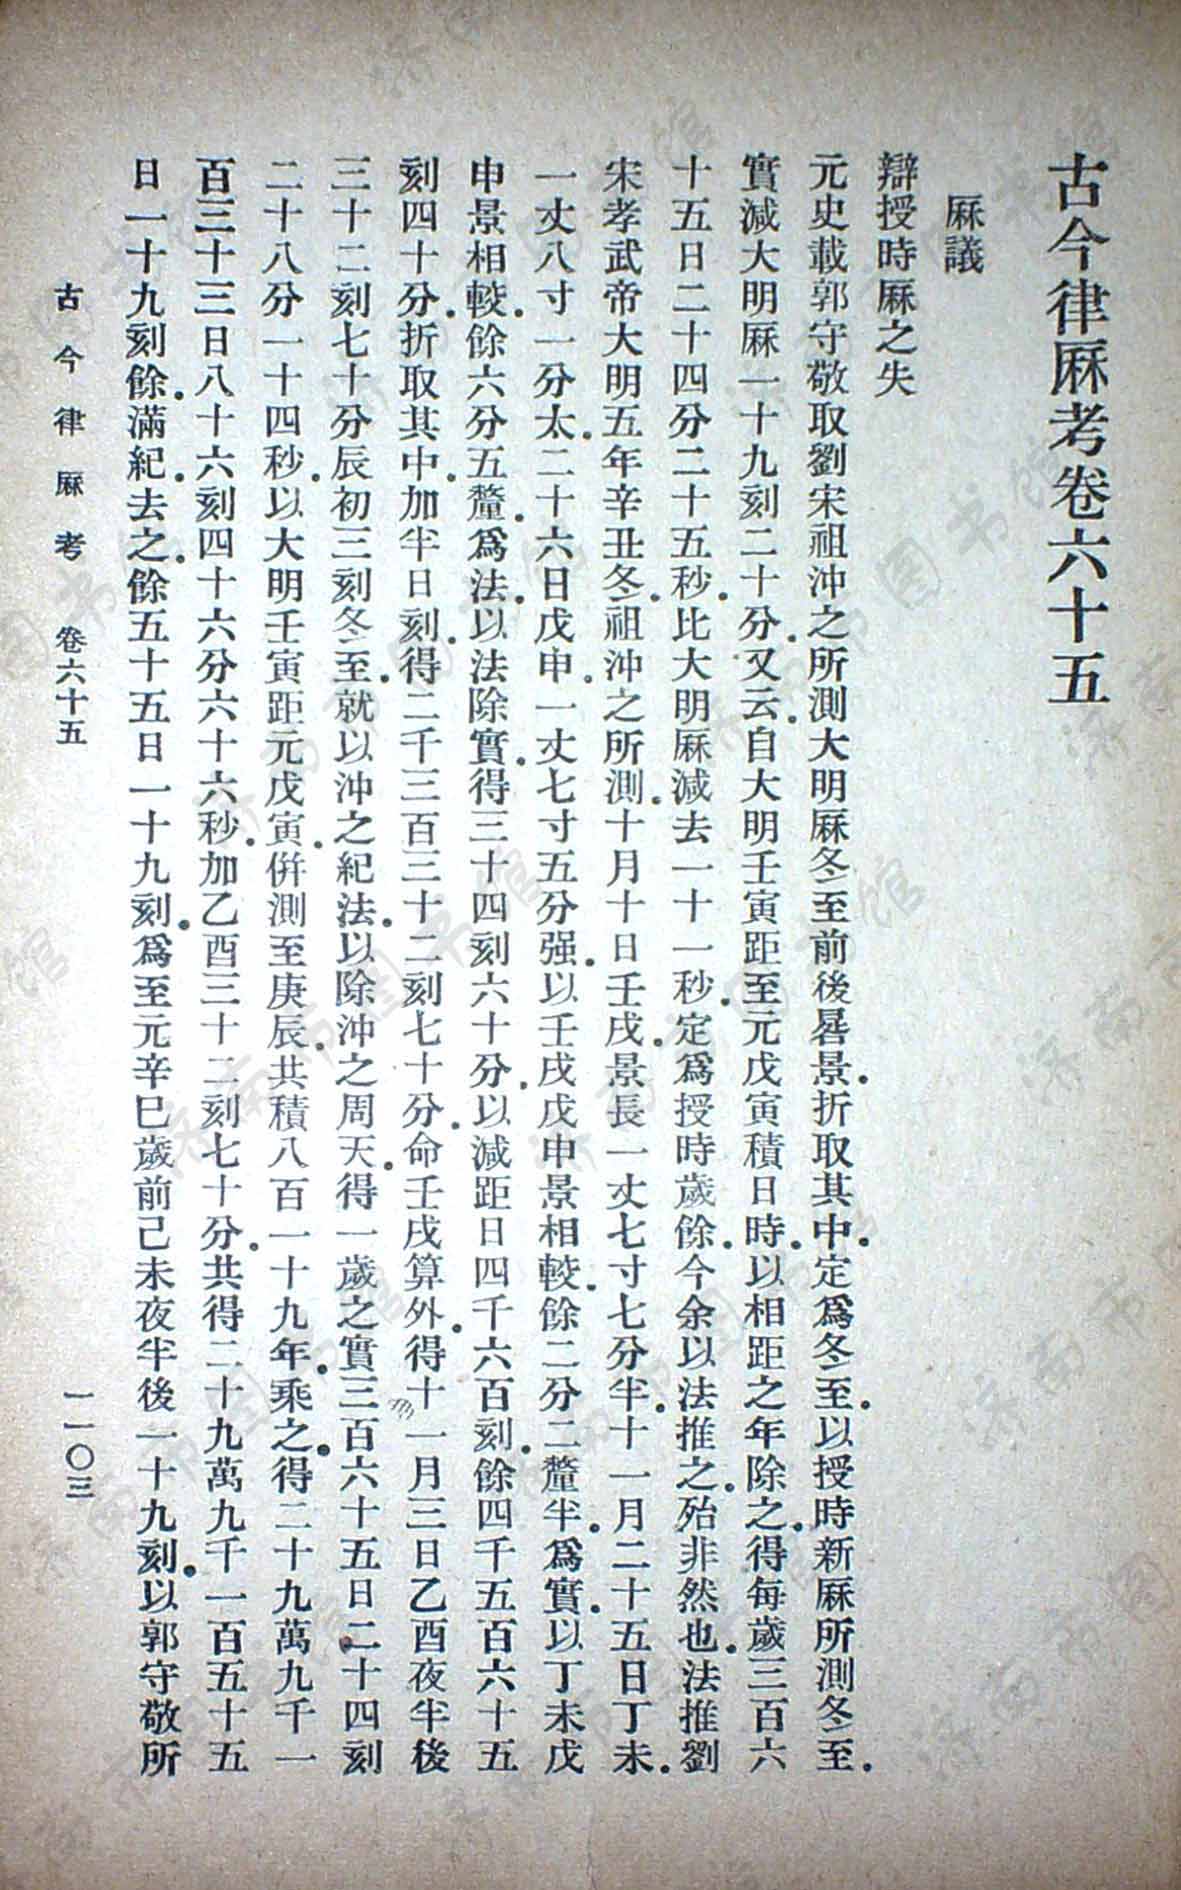 古今律厤考卷六十五
厤議
辯授時厤之失
元史載郭守敬取劉宋祖沖之所測大明厤冬至前後晷景.折取其中.定爲冬至.以授時新厤所測冬至.
實減大明厤一十九刻二十分.又云.自大明壬寅距至元戊寅積日時.以相距之年除之.得每歲三百六
十五日二十四分二十五秒.比大明厤減去一十一秒.定爲授時歲餘.今余以法推之.殆非然也.法推劉
宋孝武帝大明五年辛丑冬.祖沖之所測.十月十日壬戌.景長一丈七寸七分半.十一月二十五日丁未.
一丈八寸一分太.二十六日戊申.一丈七寸五分强.以壬戌戊申景相較.餘二分二釐半.爲實.以丁未戊
申景相較.餘六分五釐.爲法.以法除實.得三十四刻六十分.以減距日四千六百刻.餘四千五百六十五
刻四十分.折取其中.加半日刻.得二千三百三十二刻七十分.命壬戌算外.得十一月三日乙酉夜半後
三十二刻七十分辰初三刻冬至.就以沖之紀法.以除沖之周天.得一歲之實三百六十五日二十四刻
二十八分一十四秒.以大明壬寅距元戊寅.併測至庚辰.共積八百一十九年.乘之.得二十九萬九千一
百三十三日八十六刻四十六分六十六秒.加乙酉三十二刻七十分.共得二十九萬九千一百五十五
日一十九刻餘.滿紀去之.餘五十五日一十九刻.爲至元辛巳歲前己未夜半後一十九刻.以郭守敬所
古今律厤考 卷六十五 一一〇三
济南市图书馆